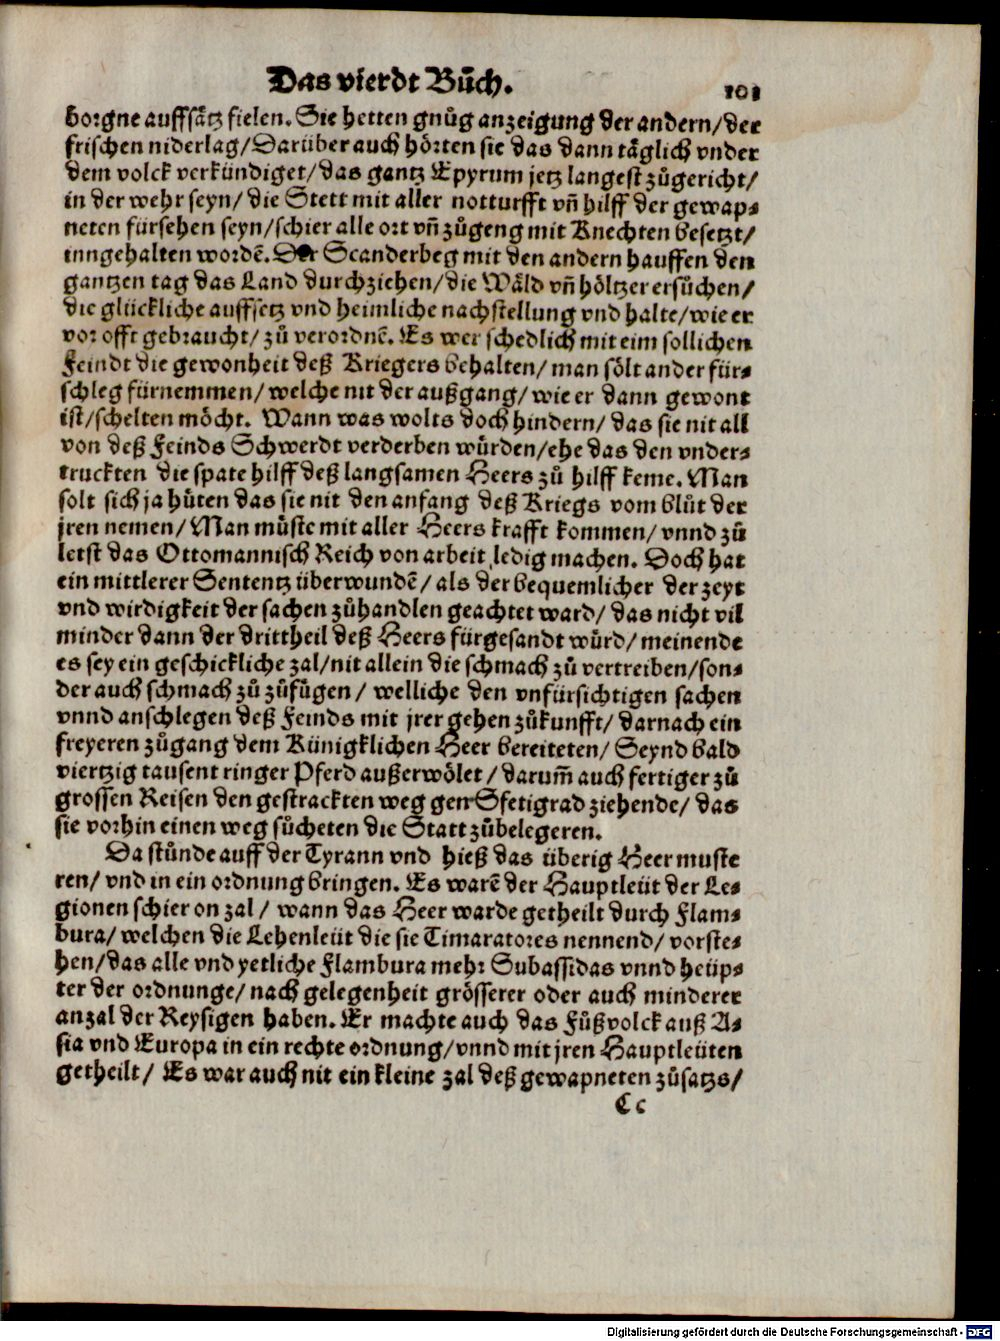 Das vierdt Bůch. 101
borgne auffsätz fielen. Sie hetten gnůg anzeigung der andern/ der
frischen niderlag/ Darüber auch hörten sie das dann täglich vnder
dem volck verkündiget/ das gantz Epyrum jetz langest zůgericht/
in der wehr seyn/ die Stett mit aller notturfft vn̄ hilff der gewap⸗
neten fürsehen seyn/ schier alle ort vn̄ zůgeng mit Knechten besetzt/
inngehalten wordē. Der Scanderbeg mit den andern hauffen den
gantzen tag das Land durchziehen/ die Wäld vn̄ höltzer ersůchen/
die glückliche auffsetz vnd heimliche nachstellung vnd halte/ wie er
vor offt gebraucht/ zů verordnē. Es wer schedlich mit eim sollichen
Feindt die gewonheit deß Kriegers behalten/ man sölt ander für⸗
schleg fürnemmen/ welche nit der außgang/ wie er dann gewont
ist/ schelten möcht. Wann was wolts doch hindern/ das sie nit all
von deß Feinds Schwerdt verderben würden/ ehe das den vnder⸗
truckten die spate hilff deß langsamen Heers zů hilff keme. Man
solt sich ja hüten das sie nit den anfang deß Kriegs vom blůt der
jren nemen/ Man můste mit aller Heers krafft kommen/ vnnd zů
letst das Ottomannisch Reich von arbeit ledig machen. Doch hat
ein mittlerer Sententz überwundē/ als der bequemlicher der zeyt
vnd wirdigkeit der sachen zůhandlen geachtet ward/ das nicht vil
minder dann der drittheil deß Heers fürgesandt würd/ meinende
es sey ein geschickliche zal/ nit allein die schmach zů vertreiben/ son⸗
der auch schmach zů zůfügen/ welliche den vnfürsichtigen sachen
vnnd anschlegen deß Feinds mit jrer gehen zůkunfft/ darnach ein
freyeren zůgang dem Künigklichen Heer bereiteten/ Seynd bald
viertzig tausent ringer Pferd außerwölet/ darum̄ auch fertiger zů
grossen Reisen den gestrackten weg gen Sfetigrad ziehende/ das
sie vorhin einen weg sůcheten die Statt zůbelegeren.
Da stůnde auff der Tyrann vnd hieß das überig Heer muste
ren/ vnd in ein ordnung bringen. Es warē der Hauptleüt der Le⸗
gionen schier on zal/ wann das Heer warde getheilt durch Flam⸗
bura/ welchen die Lehenleüt die sie Timaratores nennend/ vorste⸗
hen/ das alle vnd yetliche Flambura mehr Subassidas vnnd heüp⸗
ter der ordnunge/ nach gelegenheit grösserer oder auch minderer
anzal der Reysigen haben. Er machte auch das Fůßvolck auß A⸗
sia vnd Europa in ein rechte ordnung/ vnnd mit jren Hauptleüten
getheilt/ Es war auch nit ein kleine zal deß gewapneten zůsatzs/
Cc
Digitalisierung gefördert durch die Deutsche Forschungsgemeinschaft - DFG